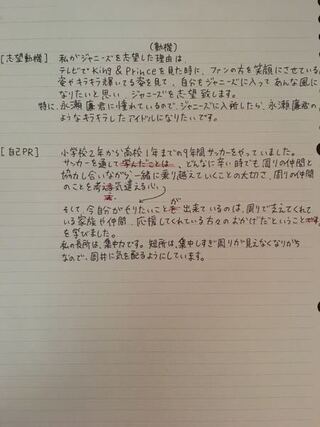 (動機)
[志望動機] 私がジャニーズを志望した理由は、
テレビでKing & Princeを見た時に、ファンの方を笑顔にさせている
姿やキラキラ輝いてる姿を見て、自分もジャニーズに入ってあんな風に
なりたいと思い、ジャニーズを志望致します。
特に、永瀬廉君に憧れているので、ジャニーズに入所したら、永瀬廉君の
ようなキラキラしたアイドルになりたいです。
[自己PR] 小学校2年から高校1年までの9年間サッカーをやっていました。
サッカーを通して学んだことは、どんなに辛い時でも周りの仲間と
協力し合いながら、一緒に乗り越えていくことの大切さ、周りの仲間
のことを考え気遣える心。
が
そして、今自分がやりたいことを出来ているのは、周りで支えてくれて
いる家族や仲間、応援してくれている方々のおかげだということです。
を学びました。
私の長所は、集中力です。短所は、集中しすぎ周りが見えなくなりがち
なので、周井に気を配るようにしています。